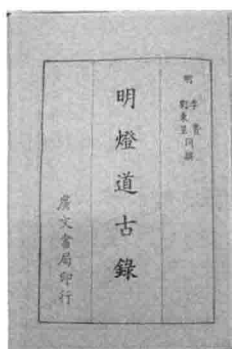 明 李贄
劉東星同撰
明燈道古錄
廣文書局印行